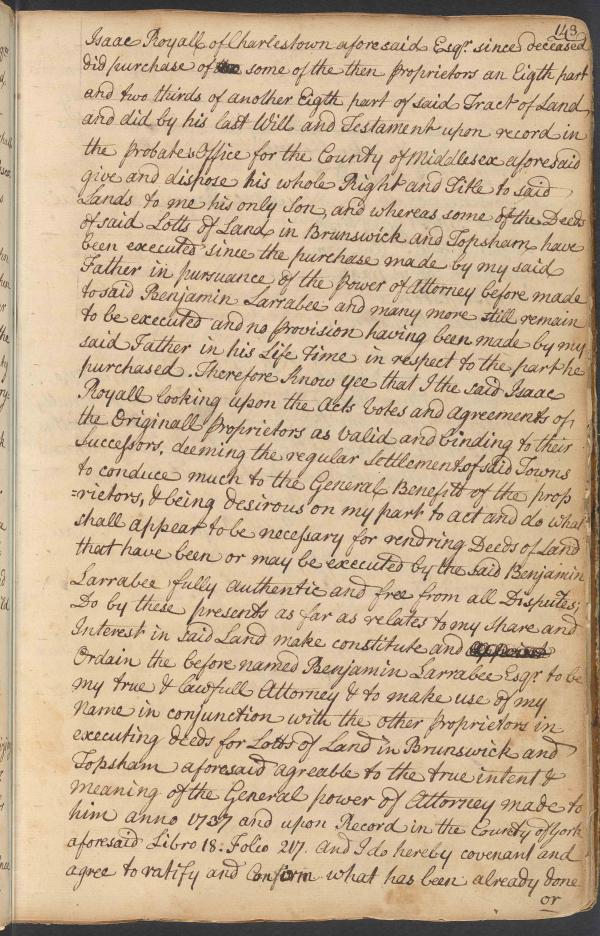 143
Isaac Royall of Charlestown aforesaid Esqr. since deceased
did purchase of some of the then Proprietors an Eigth part
and two thirds of another Eigth part of said Tract of Land
and did by his last Will and Testament upon record in
the Probates Office for the County of Middlesex aforesaid
give and dispose his whole Right and Title to said
Lands to me his only Son, and whereas some of the Deeds
of said Lotts of Land in Brunswick and Topsham have
been executed since the purchase made by my said
Father in pursuance of the Power of Attorney before made
to said Benjamin Larrabee and many more still remain
to be executed and no Provision having been made by my
said Father in his Life Time in respect to the part he
purchased. Therefore Know yee that I the said Isaac
Royall looking upon the Acts Votes and agreements of
the Originall Proprietors as valid and binding to their
Successors, deeming the regular Settlement of said Towns
to conduce much to the General Benefit of the prop
=rietors, & being desirous on my part to act and do what
shall appear to be necessary for rendring Deeds of Land
that have been or may be executed by the said Benjamin
Larrabee fully authentic and free from all Disputes;
Do by these presents as far as relates to my share and
Interest in said Land make constitute and
Ordain the before named Benjamin Larrabee Esqr. to be
my true & lawfull Attorney & to make use of my
Name in conjunction with the other Proprietors in
executing deeds for Lotts of Land in Brunswick and
Topsham aforesaid agreable to the true intent &
meaning of the General power of Attorney made to
him anno 1737 and upon Record in the County of York
aforesaid Libro 18: Folio 217. And I do hereby covenant and
agree to ratify and Confirm what has been already done
or